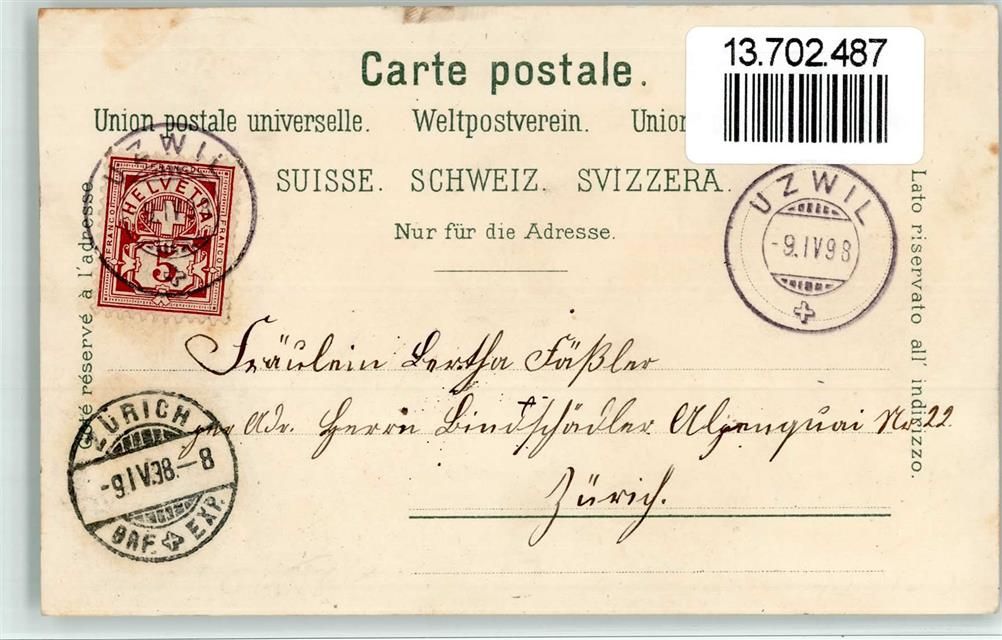 13.702.487
Carte postale.
Union postale universelle. Weltpostverein. Union
SUISSE. SCHWEIZ. SVIZZERA.
Nur für die Adresse.
té réservé à l'adresse
Lato riservato all' indirizzo.
UZWIL
FRANCO
HELVETIA
FRANCO
5
UZWIL
-9.IV98
Fräulein Bertha Fäßler
per Adr. Herrn Bindschädler Alpenquai Nr 22.
Zürich.
ZÜRICH
-9.IV.98.-8
BRF. EXP.